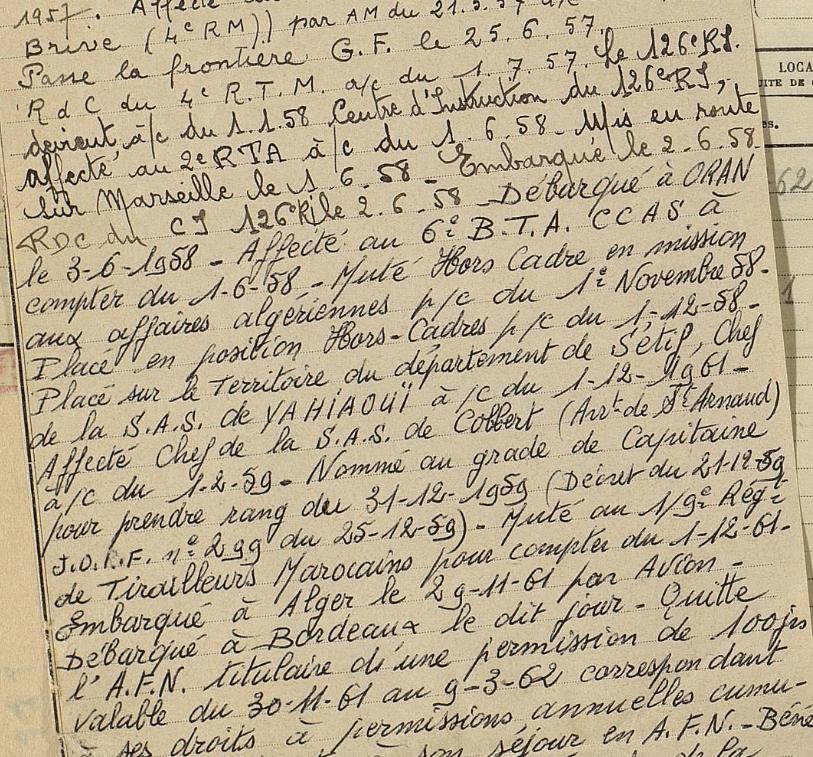 1957. Affecté
Brive (4e RM)) par AM du 21.5.57 a/c
Passe la frontière G.F. le 25.6.57.
RdC du 4e R.T.M. a/c du 1.7.57. Le 126e RI.
devient, a/c du 1.1.58 Centre d'Instruction du 126e RI,
affecté au 2e RTA à/c du 1.6.58 - Mis en route
sur Marseille le 1.6.58 - Embarqué le 2.6.58
RDC du CI 126e RI le 2.6.58 - Débarqué à ORAN
le 3-6-1958 - Affecté au 6e B.T.A. CCAS à
compter du 1-6-58 - Muté Hors Cadre en mission
aux affaires algériennes p/c du 1e Novembre 58 -
Placé en position Hors-Cadres p/c du 1-12-58 -
Placé sur le Territoire du département de Sétif, Chef
de la S.A.S. de YAHIAOUÏ à/c du 1-12-1961 -
Affecté Chef de la S.A.S. de Colbert (Arrt de St Arnaud)
à/c du 1-2-59 - Nommé au grade de Capitaine
pour prendre rang du 31-12-1959 (Décret du 21-12-59
J.O.R.F. n° 299 du 25-12-59) - Muté au 1/9e Régt
de Tirailleurs Marocains pour compter du 1-12-61 -
Embarqué à Alger le 29-11-61 par Avion -
Débarqué à Bordeaux le dit jour - Quitte
l'A.F.N. titulaire d'une permission de 100 jrs
valable du 30-11-61 au 9-3-62 correspondant
à ses droits à permissions annuelles cumu-
son séjour en A.F.N. - Béné
de la
LOCA
ITE DE
es.
62
1